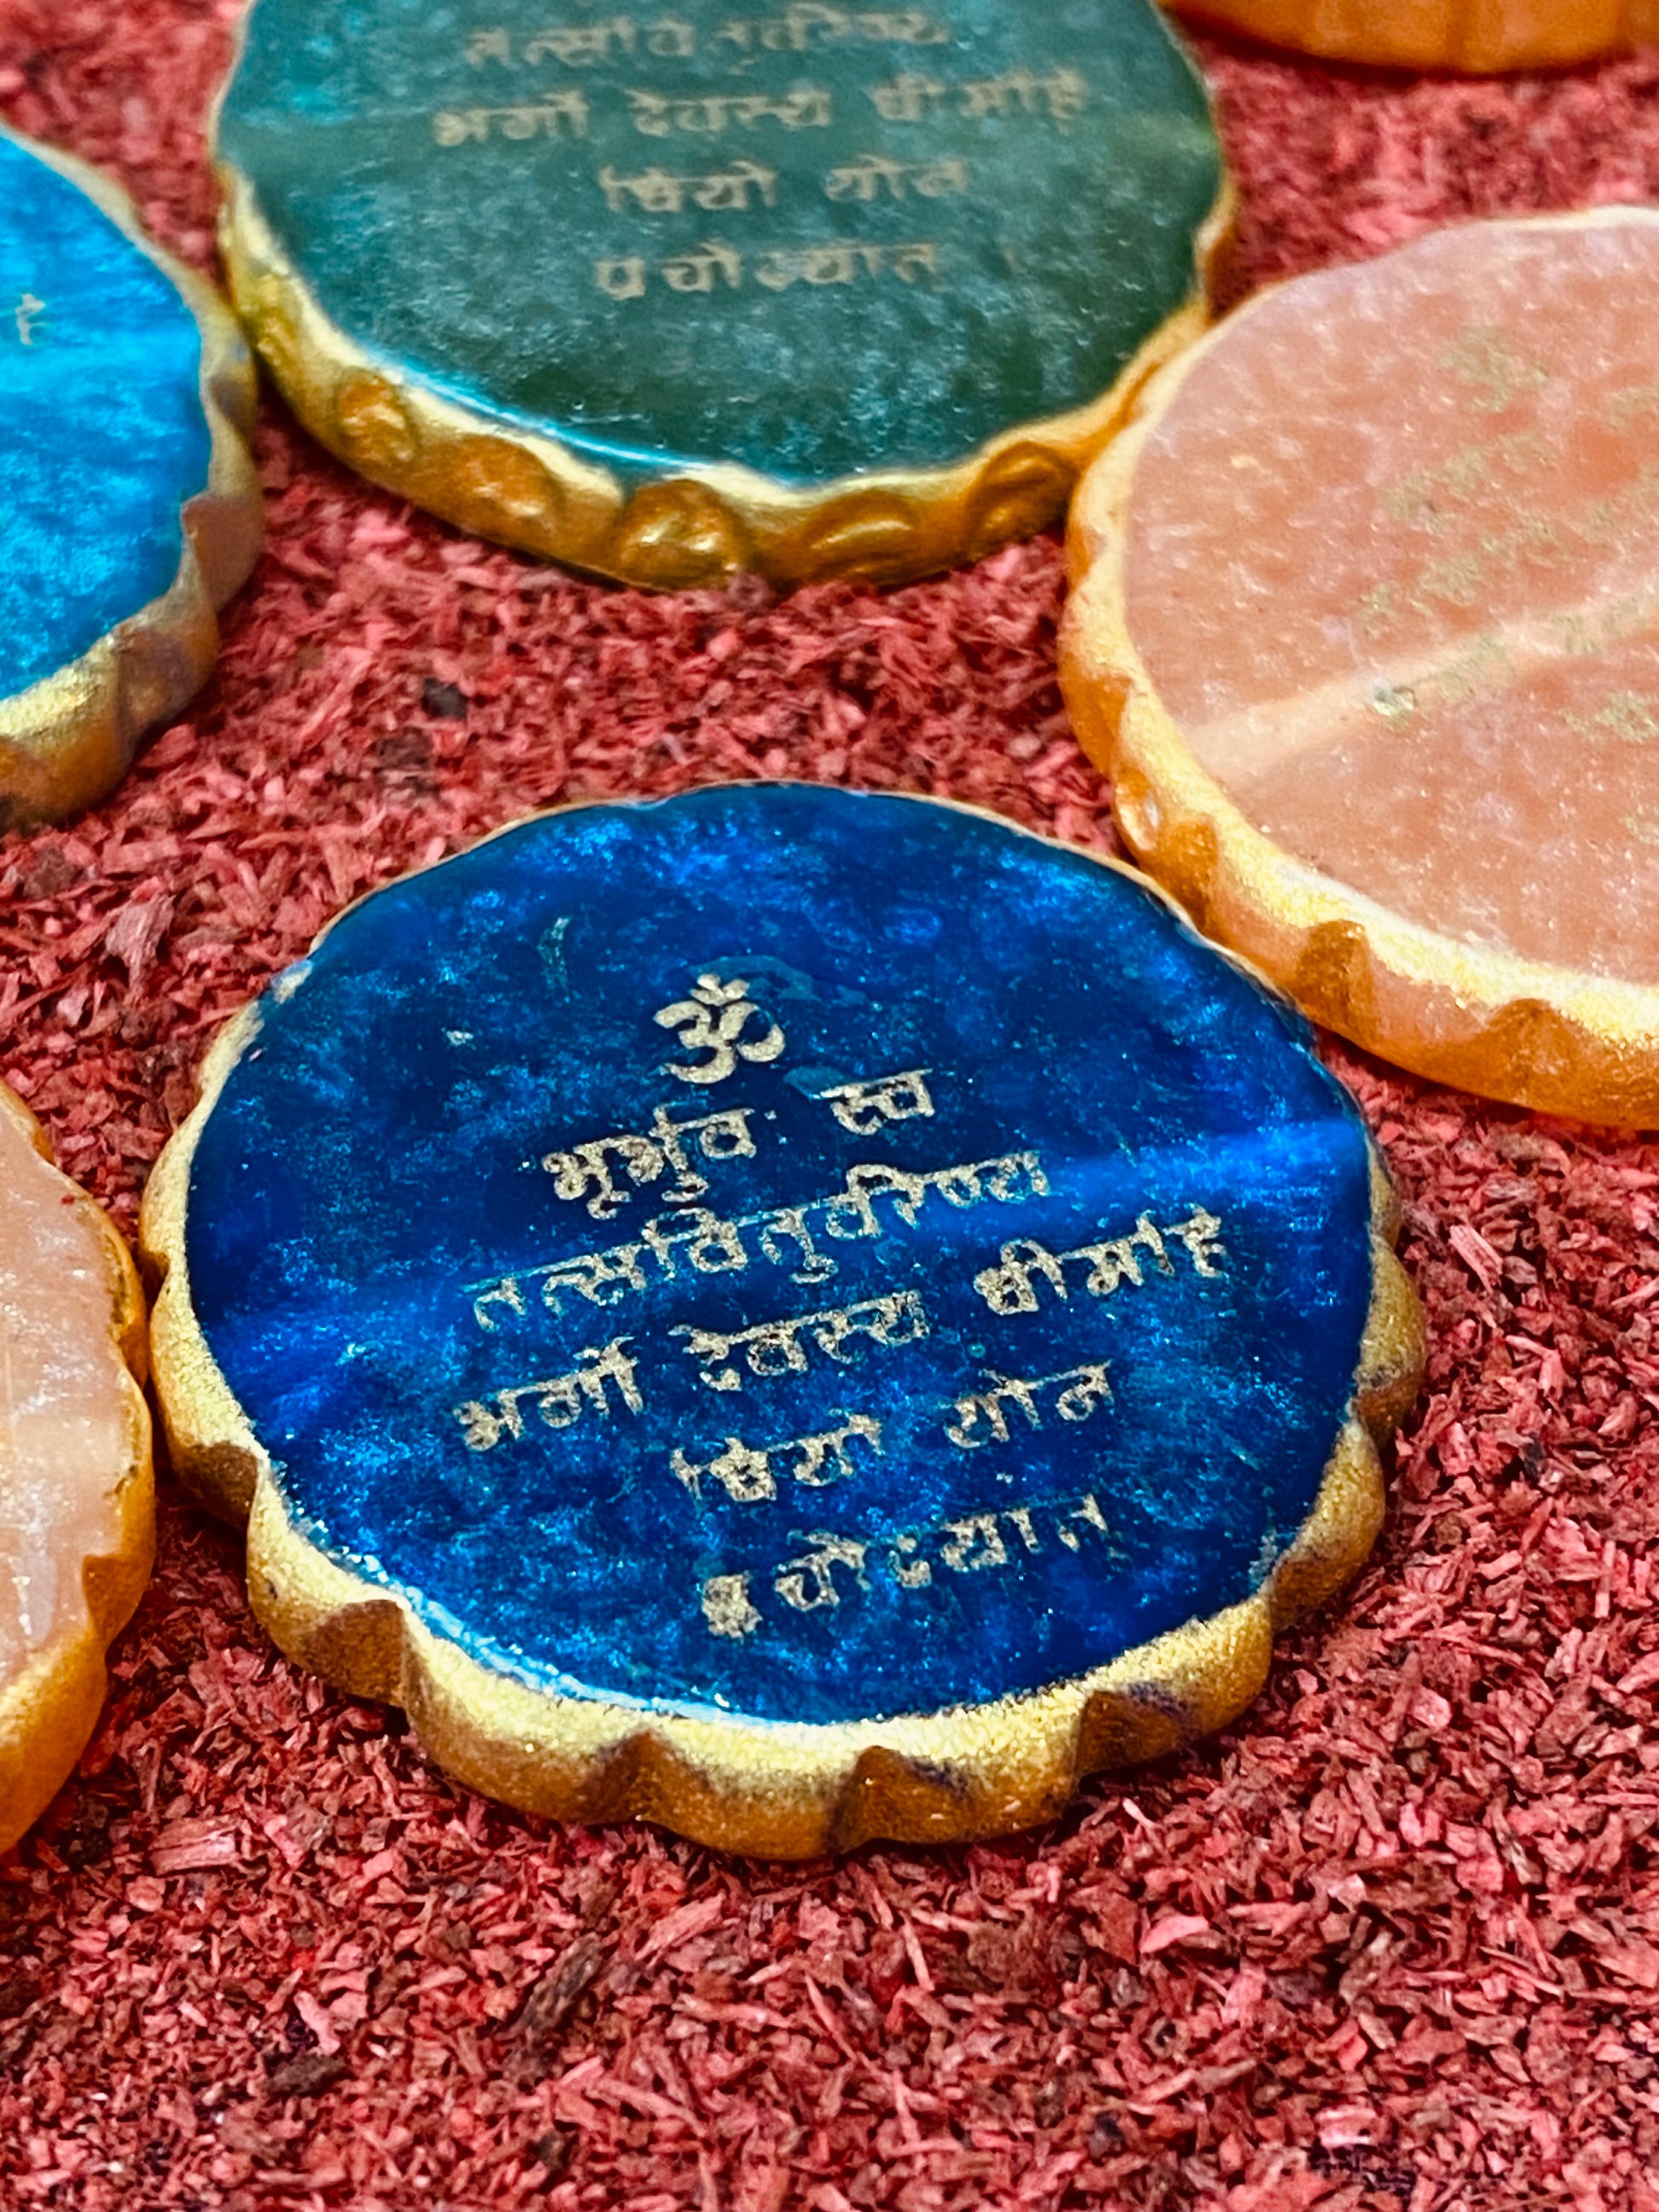 तत्सवितुर्वरेण्य
भर्गो देवस्य धीमहि
धियो योन
प्रचोदयात्
ॐ
भूर्भुव स्व
तत्सवितुर्वरेण्य
भर्गो देवस्य धीमहि
धियो योन
प्रचोदयात्